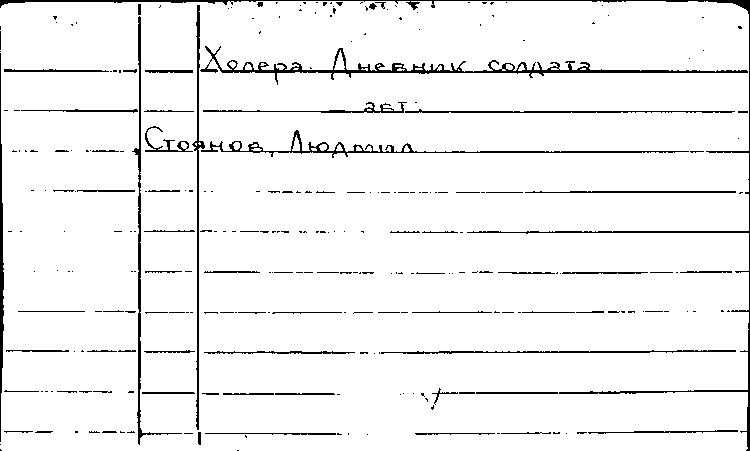 Холера. Дневник солдата
авт:
Стоянов, Людмил